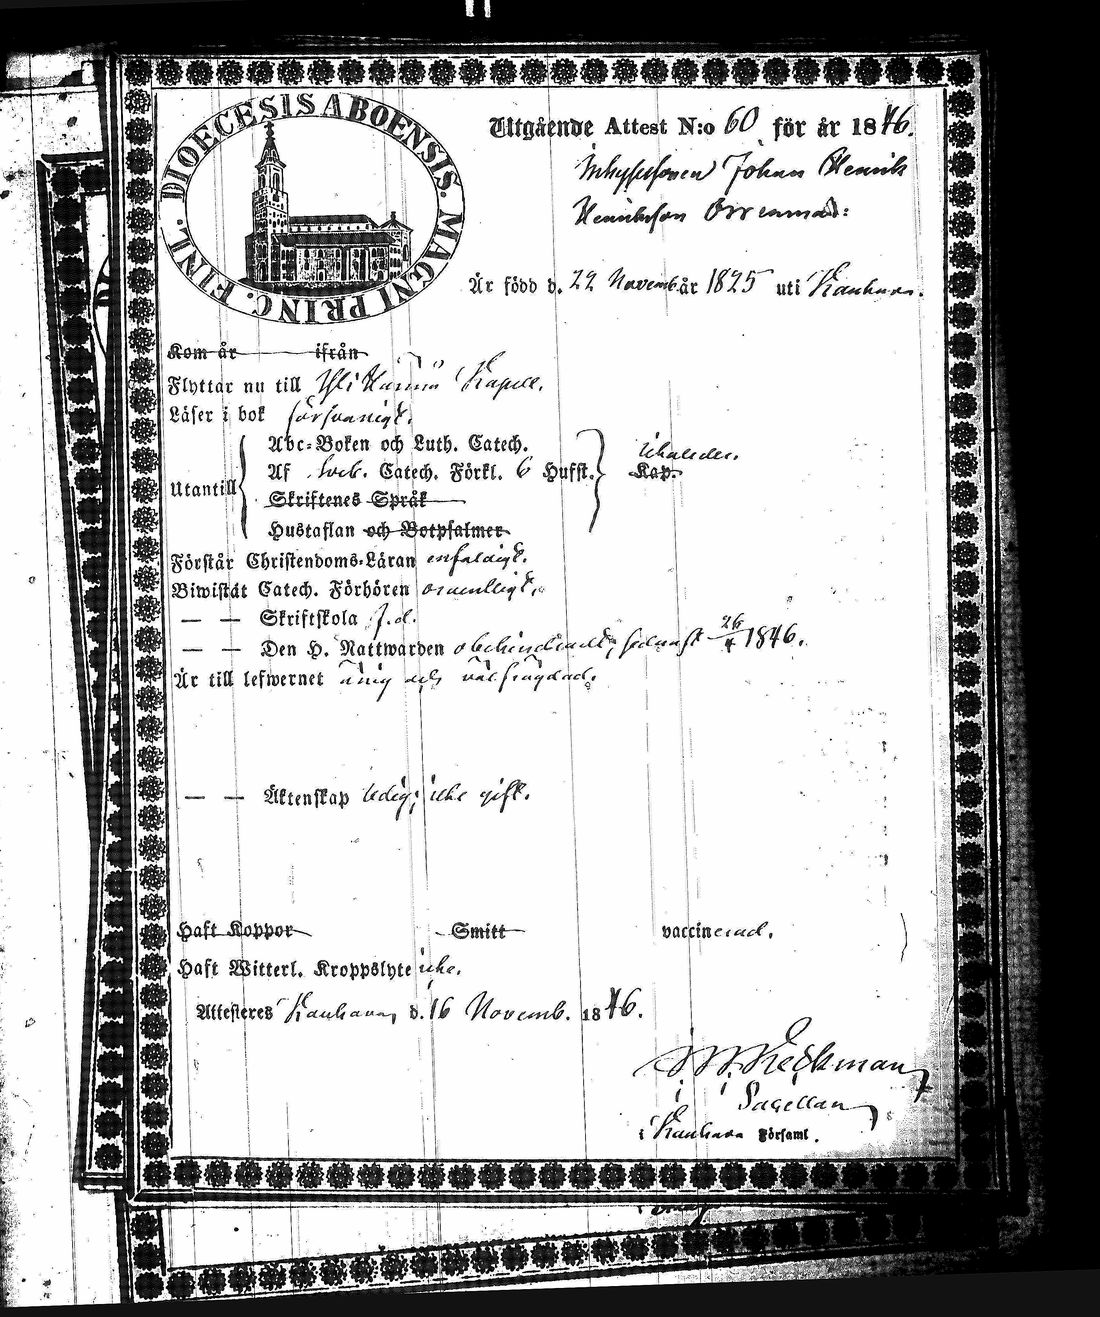 DIOECESIS ABOENSIS. MAGNI PRINC. FINL.
Utgående Attest N:o 60 för år 1846.
Inhysessonen Johan Henrik
Henriksson
Är född d. 22 Novemb. år 1825 uti Kauhava.
Kom år ifrån
Flyttar nu till Yli Kapell.
Läser i bok försvarligt.
Abc-Boken och Luth. Catech.
Af Catech. Förkl. 6 Hufst. Kap.
Utantill
Skriftenes Språk
Hustaflan och Botpsalmer
Förstår Christendoms-Läran enfaldigt.
Biwistat Catech. Förhören ordentligt.
— — Skriftskola f.d.
— — Den H. Nattwarden obehindradt, sednast 26/4 1846.
Är till lefwernet ärlig och välfrägdad.
— — Äktenskap ledig; icke gift.
Haft Koppor Smitt vaccinerad.
Haft Witterl. Kroppslyte icke.
Attesteres Kauhava, d. 16 Novemb. 1846.
Heckman
Sacellan
i Kauhava Församl.